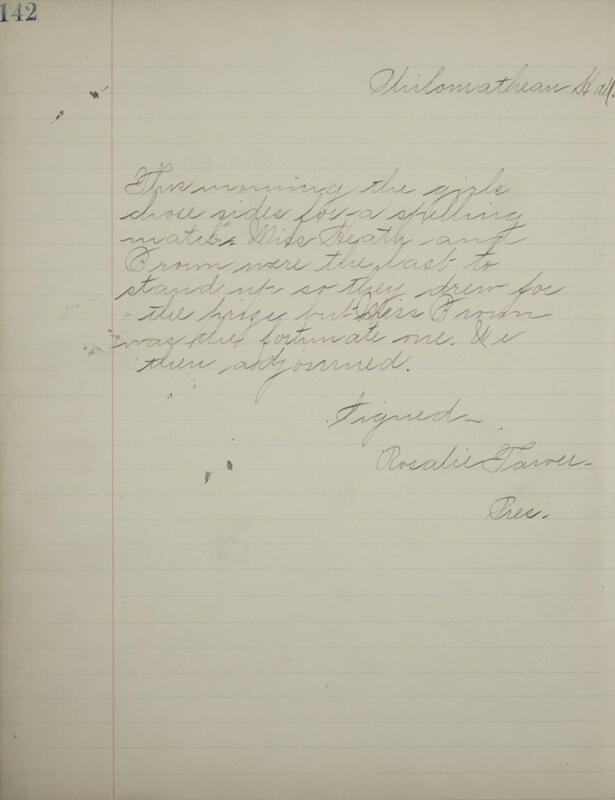 142
Philomathean Hall.
This morning the girls
chose sides for a spelling
match. Miss Heath and
Crown were the last to
stand up so they drew for
the prize but Miss Crown
was the fortunate one. We
then adjourned.
Signed—
Rosalie Tarver—
Pres.